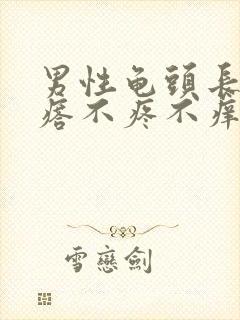 男性龟頭長
痞不疼不痒
雪戀劍